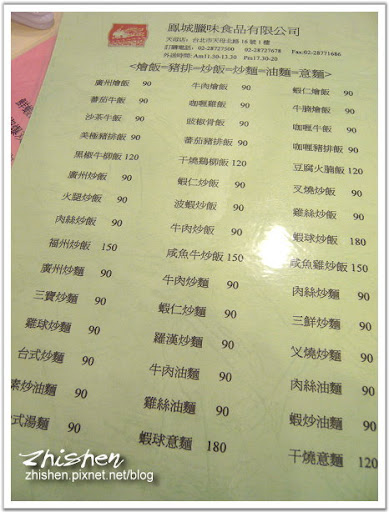 鳳城臘味食品有限公司
天母店：台北市天母北路16號1樓
訂購電話：02-28727500 02-28727678 Fax:02-28771686
外送時間：Am11.30-13.20 Pm17.30-20
<燴飯=豬排=炒飯=炒麵=油麵=意麵>
廣州燴飯 90 牛肉燴飯 90 蝦仁燴飯 90
蕃茄牛飯 90 咖喱雞飯 90 牛腩燴飯 90
沙茶牛飯 90 豉椒骨飯 90 咖喱牛飯 90
美極豬排飯 90 蕃茄豬排飯 90 咖喱豬排飯 90
黑椒牛柳飯 120 干燒鷄柳飯 120 豆腐火腩飯 120
廣州炒飯 90 蝦仁炒飯 90 叉燒炒飯 90
火腿炒飯 90 波蝦炒飯 90 雞絲炒飯 90
肉絲炒飯 90 牛肉炒飯 90 蝦球炒飯 180
福州炒飯 150 咸魚牛炒飯 150 咸魚雞炒飯 150
廣州炒麵 90 牛肉炒麵 90 肉絲炒麵 90
三寶炒麵 90 蝦仁炒麵 90 三鮮炒麵 90
雞球炒麵 90 羅漢炒麵 90 叉燒炒麵 90
台式炒麵 90 牛肉油麵 90 肉絲油麵 90
素炒油麵 90 雞絲油麵 90 蝦炒油麵 90
式湯麵 90 蝦球意麵 180 干燒意麵 120
zhishen
zhishen.pixnet.net/blog